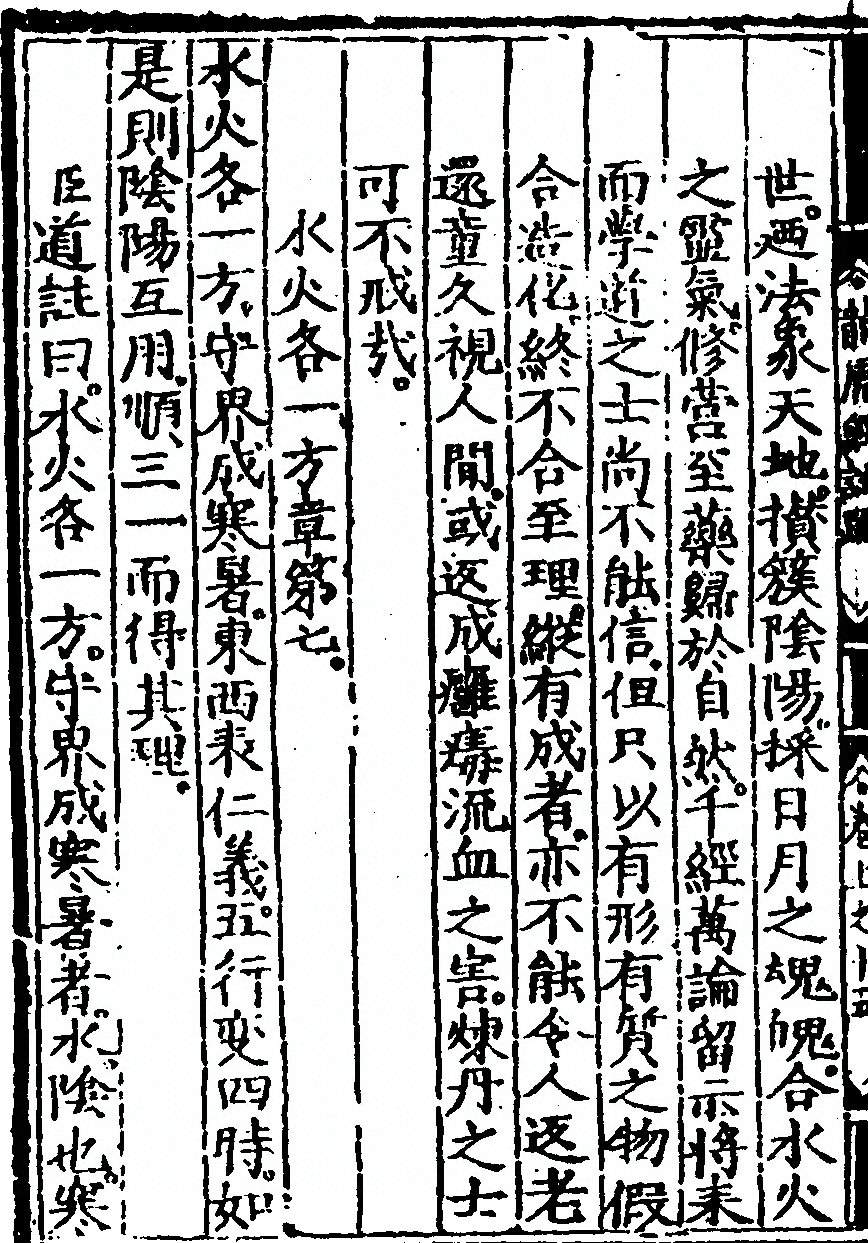 世。廼法象天地。攅簇陰陽。採日月之魂魄。合水火
之靈氣。修營至藥。歸於自然。千經萬論。留示將来
而學道之士。尚不能信。但只以有形有質之物。假
合造化。終不合至理。縱有成者。亦不能令人返老
還童。久視人間。或返成癰瘻流血之害。煉丹之士
可不戒㢤。
水火各一方章第七。
水火各一方。守界成寒暑。東西表仁義。五行变四時。如
是則陰陽互用。順三一而得其理。
臣道註曰。水火各一方。守界成寒暑者。水陰也。寒